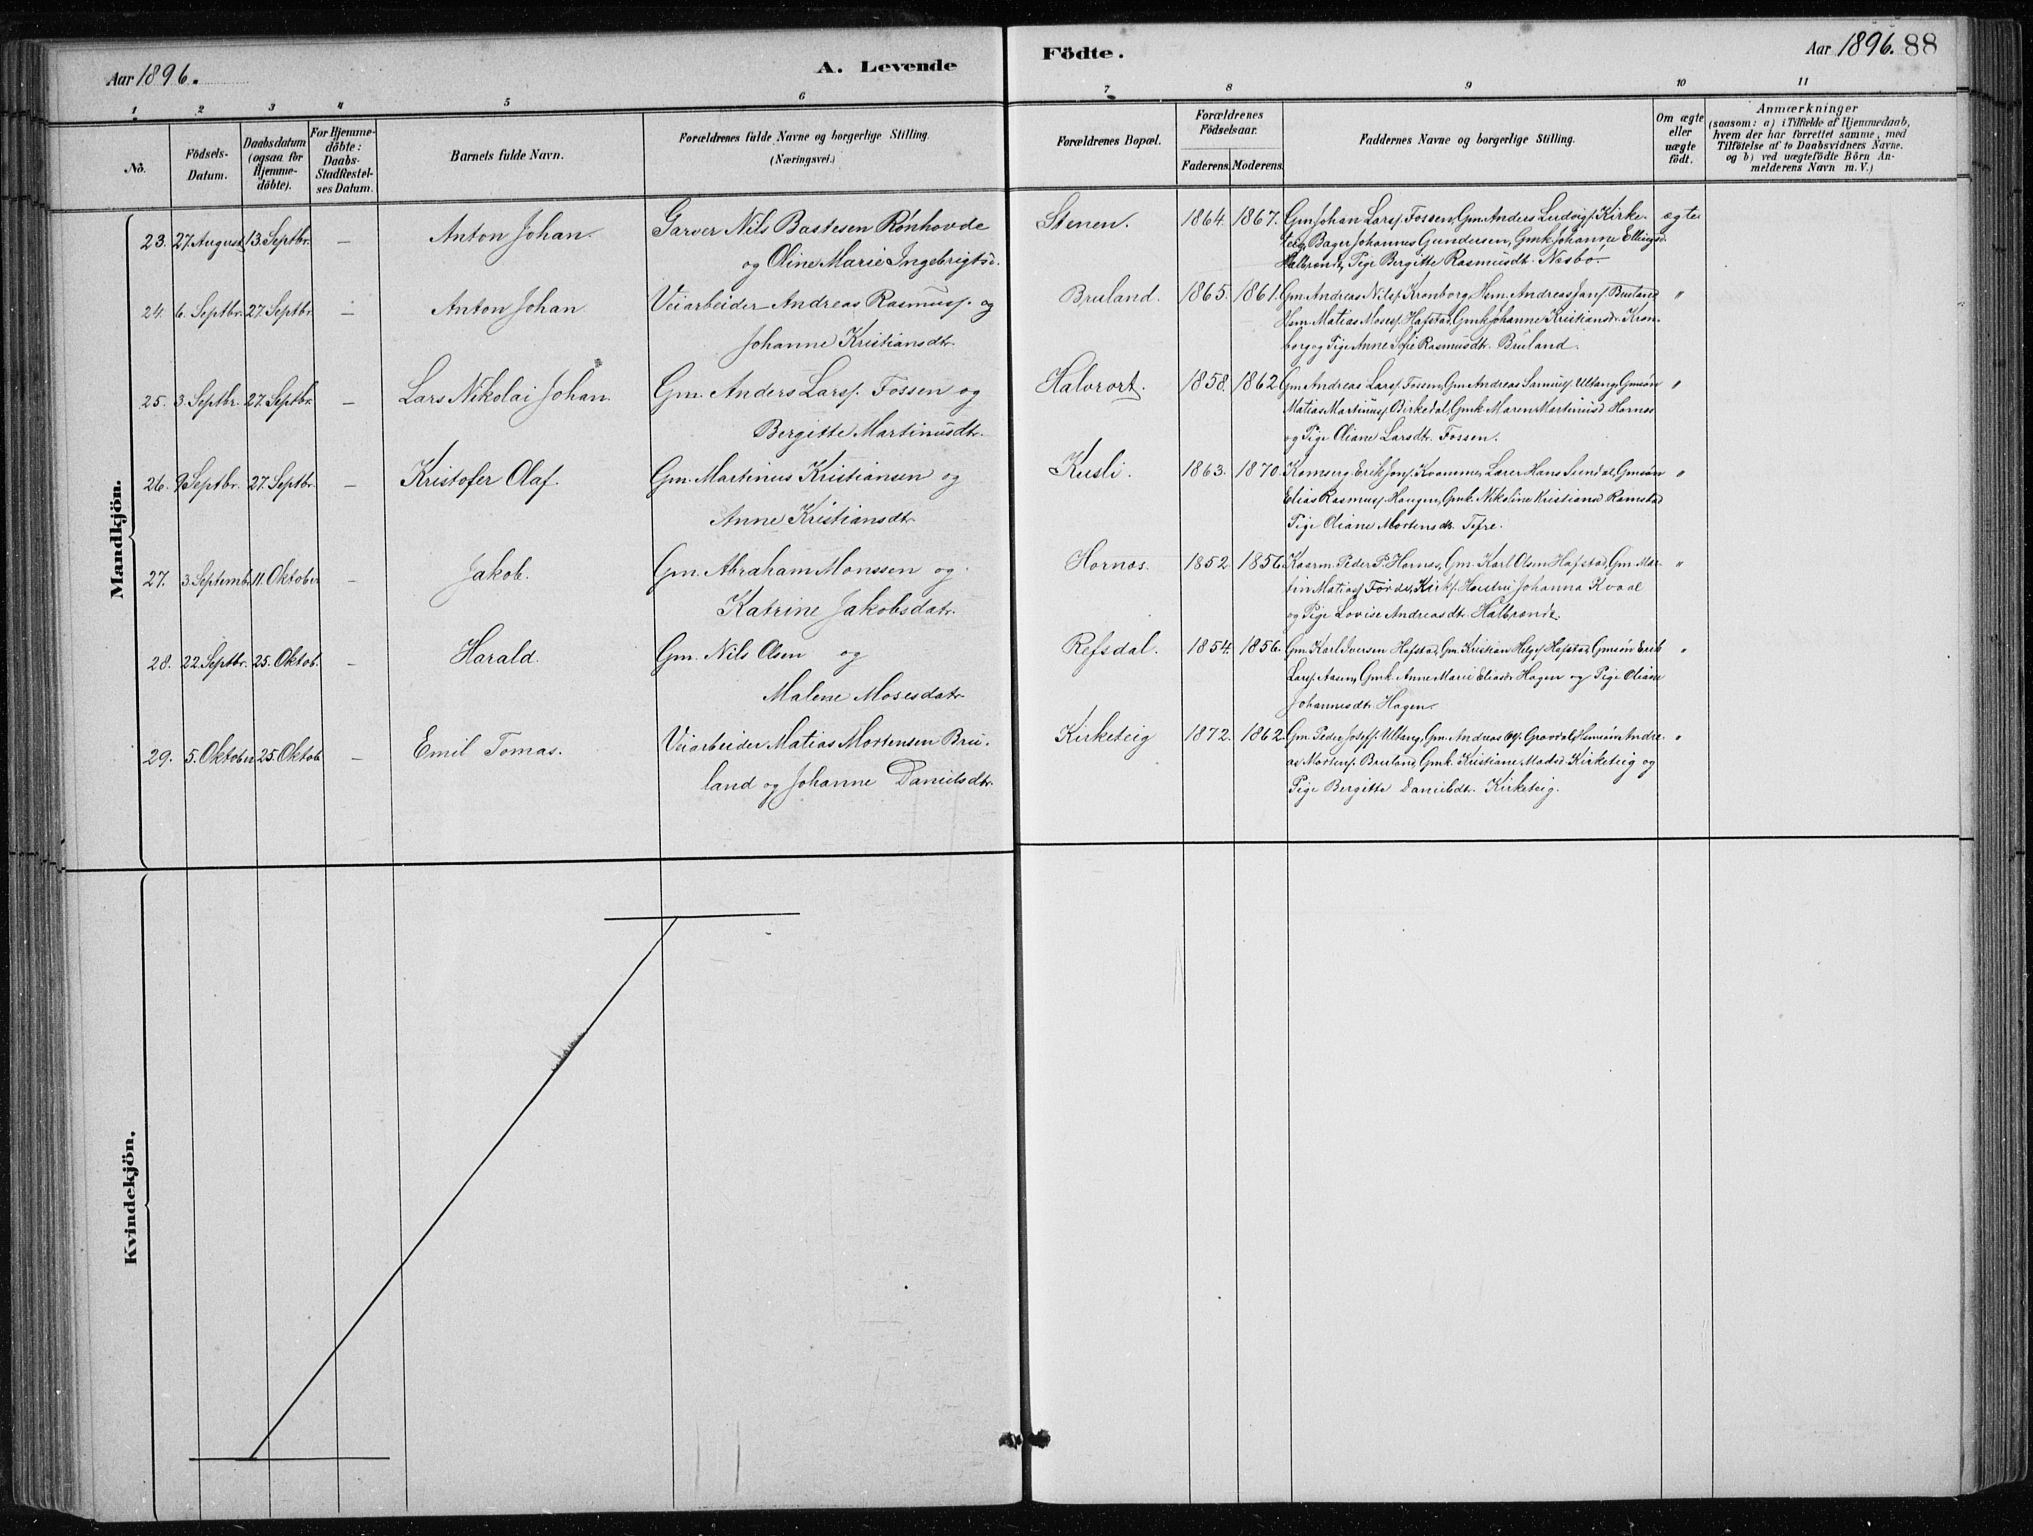 Aar 1896.
A. Levende
Födte.
Aar 1896. 88
1 2 3 4 5 6 7 8 9 10 11
No.
Födsels-
Datum.
Daabsdatum
(ogsaa for
Hjemme-
döbte).
For Hjemme-
döbte:
Daabs-
Stadfæstel-
ses Datum.
Barnets fulde Navn.
Forældrenes fulde Navne og borgerlige Stilling.
(Næringsvei.)
Forældrenes Bopæl.
Forældrenes
Födselsaar.
Faderens. Moderens.
Faddernes Navne og borgerlige Stilling.
Om ægte
eller
uægte
födt.
Anmærkninger
(saasom: a) i Tilfælde af Hjemmedaab,
hvem der har forrettet samme, med
Tilföielse af to Daabsvidners Navne.
og b) ved uægtefödte Börn An-
melderens Navn m. V.)
Mandkjön.
23. 27 August 13. Septbr. — Anton Johan. Garver Nils Bastesen Rönhovde
og Oline Marie Ingebrigtsd.
Stenen. 1864. 1867. Gm Johan Larss. Fossen, Gm. Anders Ludvigs. Kirke-
teig, Bager Johannes Gundersen, Gmk Johanne Ellingsd.
Halbrend, Pige Bergitte Rasmusdt. Næsbö.
ægte
24. 6. Septbr. 27. Septbr. — Anton Johan Veiarbeider Andreas Rasmuss. og
Johanne Kristiansdtr.
Bruland. 1865. 1861. Gm. Andreas Nilss. Kronborg, Hsm. Andreas Jans. Bruland
Hsm. Matias Moses. Hafstad, Gmk Johanne Kristiansdr. Kron-
borg og Pige Anne Sofie Rasmusdtr. Bruland.
"
25. 3. Septbr. 27. Septbr. — Lars Nikolai Johan. Gm. Anders Larss. Fossen og
Bergitte Martinusdtr.
Halvrort. 1858. 1862. Gm. Andreas Larss. Fossen, Gm. Andreas Samuels. Ultang, Gmsön
Matias Martinuss. Birkedal, Gmk. Maren Martinusd. Hornæs
og Pige Oliane Larsdtr. Fossen.
"
26. 9 Septbr. 27. Septbr. — Kristofer Olaf. Gm. Martinus Kristiansen og
Anne Kristiansdtr.
Kusli. 1863. 1870. Erik Jons. Kvamme, Lærer Hans Sundal, Gmsön
Elias Rasmuss. Haugen, Gmk. Nikoline Kristiansd. Ramstad
Pige Oliane Mortensdtr. Tefre.
"
27. 3. Septembr. 11. Oktober — Jakob. Gm. Abraham Monssen og
Katrine Jakobsdatr.
Hornæs. 1852 1856. Peder P. Hornæs, Gm. Karl Olsen Hafstad, Gm. Mar-
tin Matias. Förde, Johanna Kvaal
og Pige Lovise Andreasdtr. Halbrende.
"
28. 22. Septbr. 25. Oktob. — Harald. Gm. Nils Olsen og
Malene Mosesdatr.
Refsdal. 1854. 1856. Gm. Karl Iversen Hafstad, Gm. Kristian Helges. Hafstad, Gmsön Erik
Larss. Aasen, Gmk. Anne Marie Eliasdr. Hagen og Pige Oliane
Johannesdtr. Hagen.
"
29. 5. Oktober 25. Oktob. — Emil Tomas. Veiarbeider Matias Mortensen Bru-
land og Johanne Danielsdtr.
Kirketeig 1872. 1862. Gm. Peder Josefs. Ultang, Gm. Andreas Grovdal, Hsmsön Andre-
as Mortens. Bruland, Gmk. Kristiane Madsd. Kirketeig og
Pige Bergitte Danielsdtr. Kirketeig.
"
Kvindekjön.